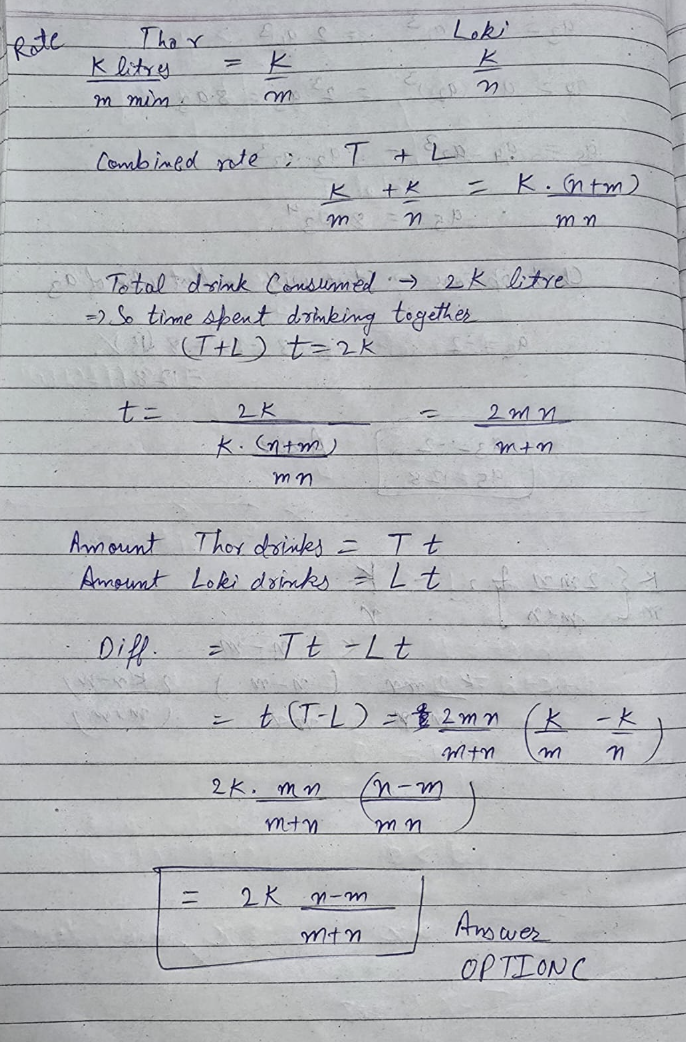 Rate Thor Loki
K litres / m min. = K/m K/n
Combined rate : T + L
K/m + K/n = K . (n+m) / mn
Total drink Consumed → 2K litre
=> So time spent drinking together
(T+L) t = 2K
t = 2K / (K . (n+m) / mn) = 2mn / m+n
Amount Thor drinks = T t
Amount Loki drinks = L t
Diff. = Tt - Lt
= t (T-L) = 2mn / m+n (K/m - K/n)
2K . mn / m+n (n-m / mn)
= 2K n-m / m+n
Answer
OPTION C